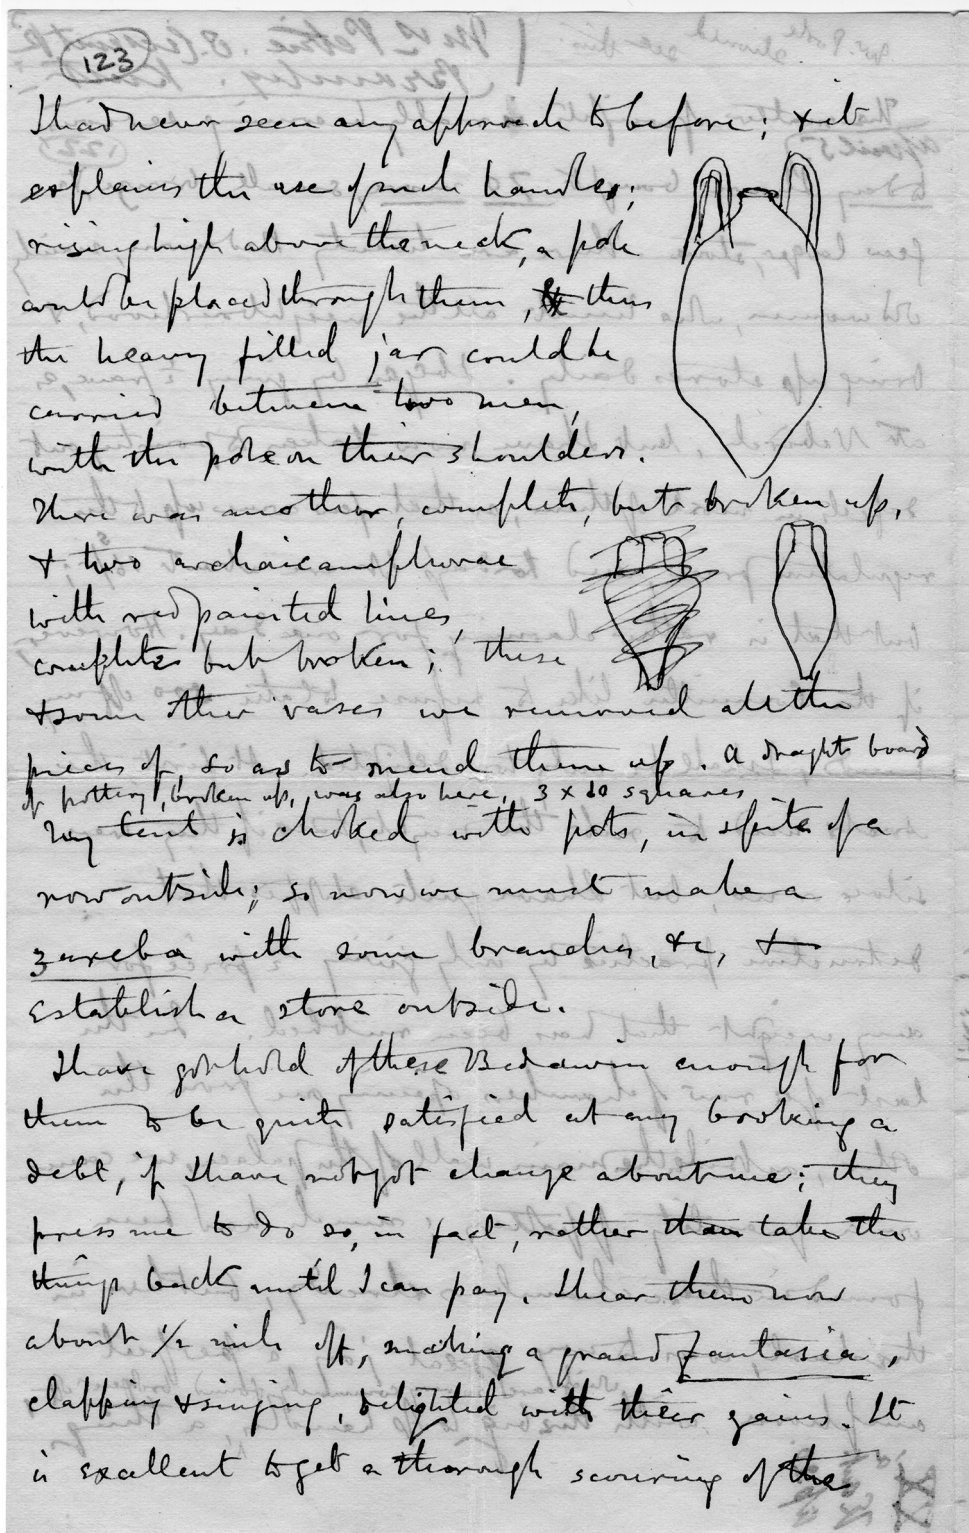 123
I had never seen any approach to before; & it
explains the use of such handles;
rising high above the neck, a pole
could be placed through them, & thus
the heavy filled jar could be
carried between two men,
with the pole on their shoulders.
There was another, complete, but broken up,
& two archaic amphorae
with red painted lines,
complete but broken; these
& some other vases we removed all the
pieces of, so as to mend them up. A draught board
of pottery, broken up, was also here, 3 x 10 squares
My tent is choked with pots, in spite of a
row outside; so now we must make a
zareba with some branches, &c, &
establish a store outside.
I have got hold of these Bedawin enough for
them to be quite satisfied at my booking a
debt, if I have not got change about me; they
press me to do so, in fact, rather than take the
things back until I can pay. I hear them now
about 1/2 mile off, making a grand fantasia,
clapping & singing, delighted with their gains. It
is excellent to get a thorough scouring of the